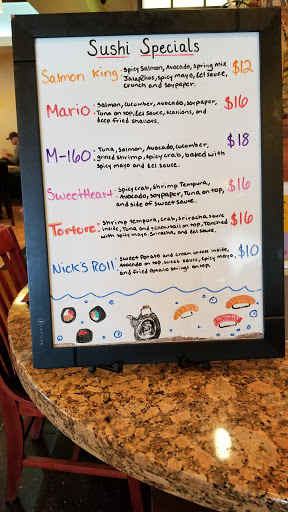 Sushi Specials
Salmon King: Spicy Salmon, Avocado, Spring mix $12
Jalapeños, Spicy mayo, Eel sauce,
crunch and soypaper.
Mario: Salmon, Cucumber, Avocado, soypaper, $16
Tuna on top, Eel sauce, scallions, and
deep fried shallots.
M-160: Tuna, Salmon, Avocado, Cucumber, $18
grilled shrimp, spicy crab, baked with
spicy mayo and Eel sauce.
SweetHeart: Spicy Crab, Shrimp Tempura, $16
Avocado, Soypaper, Tuna on top,
and side of sweet sauce.
Torture: Shrimp tempura, Crab, Sriracha sauce $16
inside, Tuna and yellowtail on top, Torched
with spicy mayo, Sriracha, and Eel sauce.
Nick's Roll: Sweet Potato and cream cheese inside, $10
Avocado on top, sweet sauce, Spicy mayo,
and fried potato strings on top.